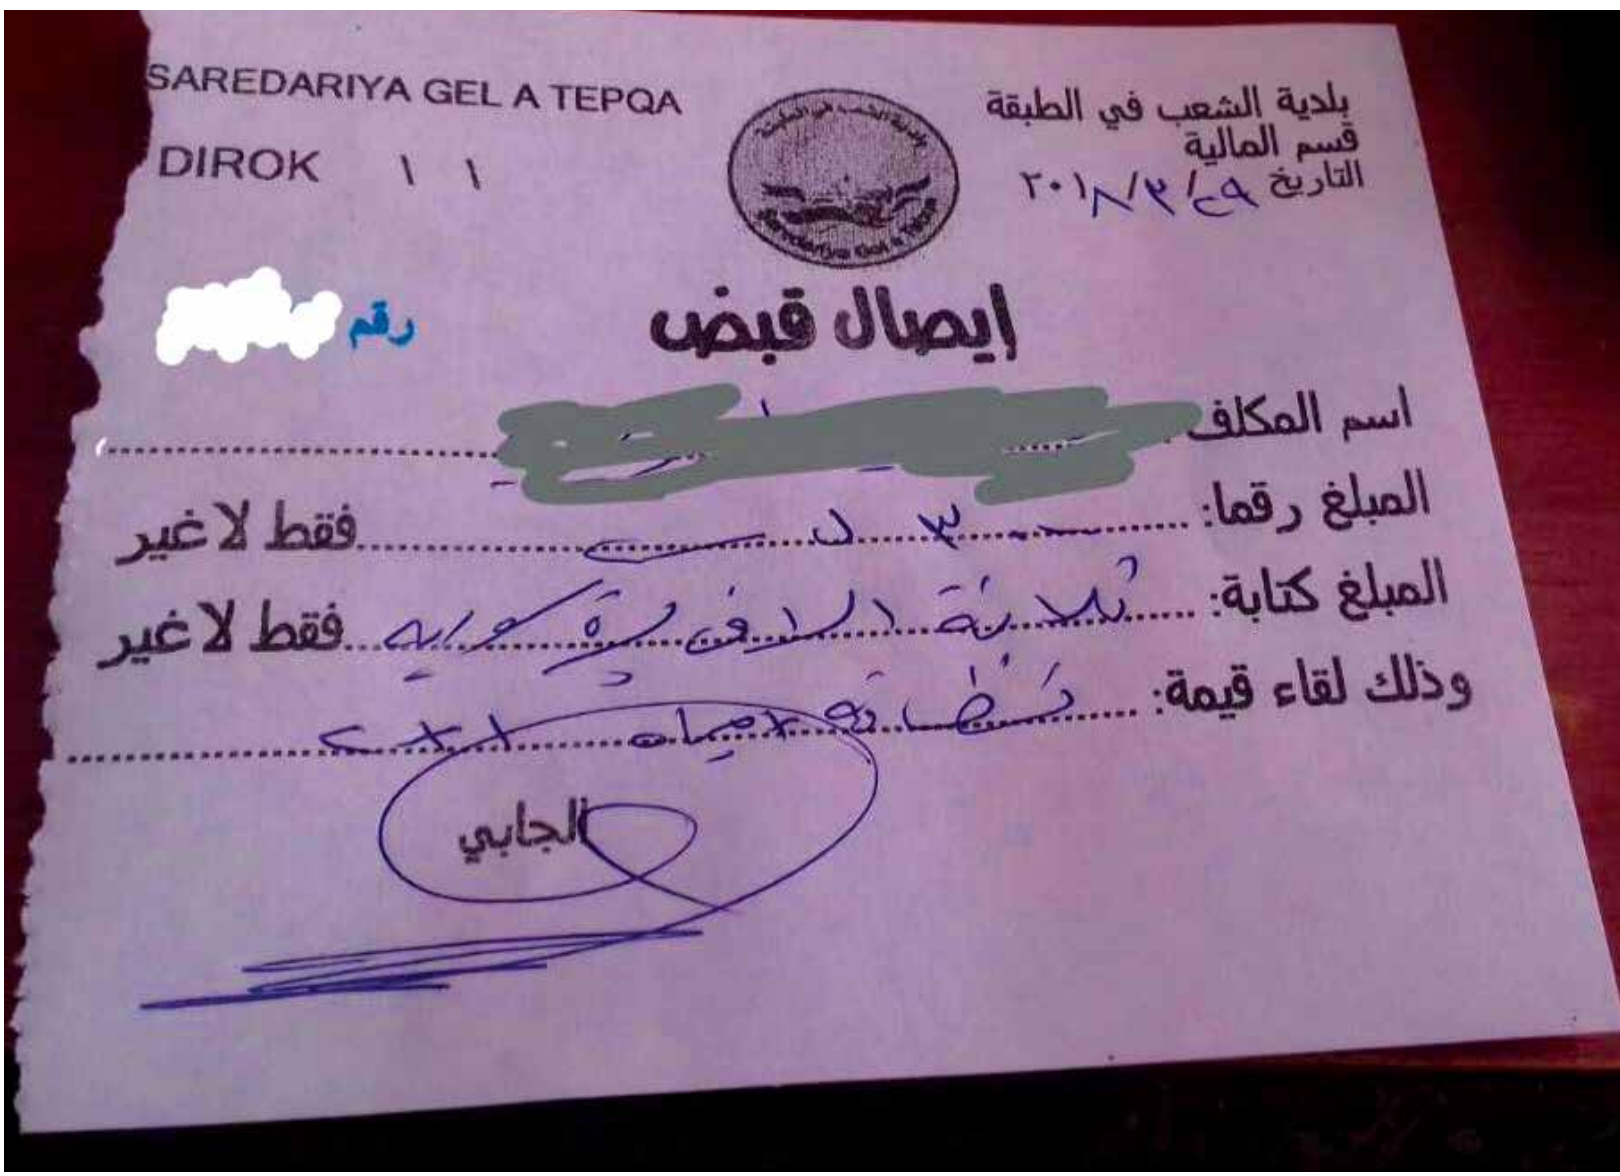 SAREDARIYA GEL A TEPQA
DIROK \ \
بلدية الشعب في الطبقة
قسم المالية
التاريخ ٢٩/٣/٢٠١٨
بلدية الشعب في الطبقة
Saredariya Gel a Tepqa
إيصال قبض
رقم
اسم المكلف
المبلغ رقما: ٣٠٠٠ ل.س فقط لا غير
المبلغ كتابة: ثلاثة الاف ليرة سورية فقط لا غير
وذلك لقاء قيمة: نظافة + مياه
الجابي